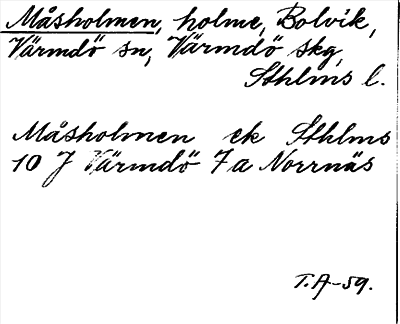 Måsholmen, holme, Bolvik,
Värmdö sn, Värmdö skg,
Sthlms l.
Måsholmen ek Sthlms
10 J Värmdö 7a Norrnäs
T.A-59.